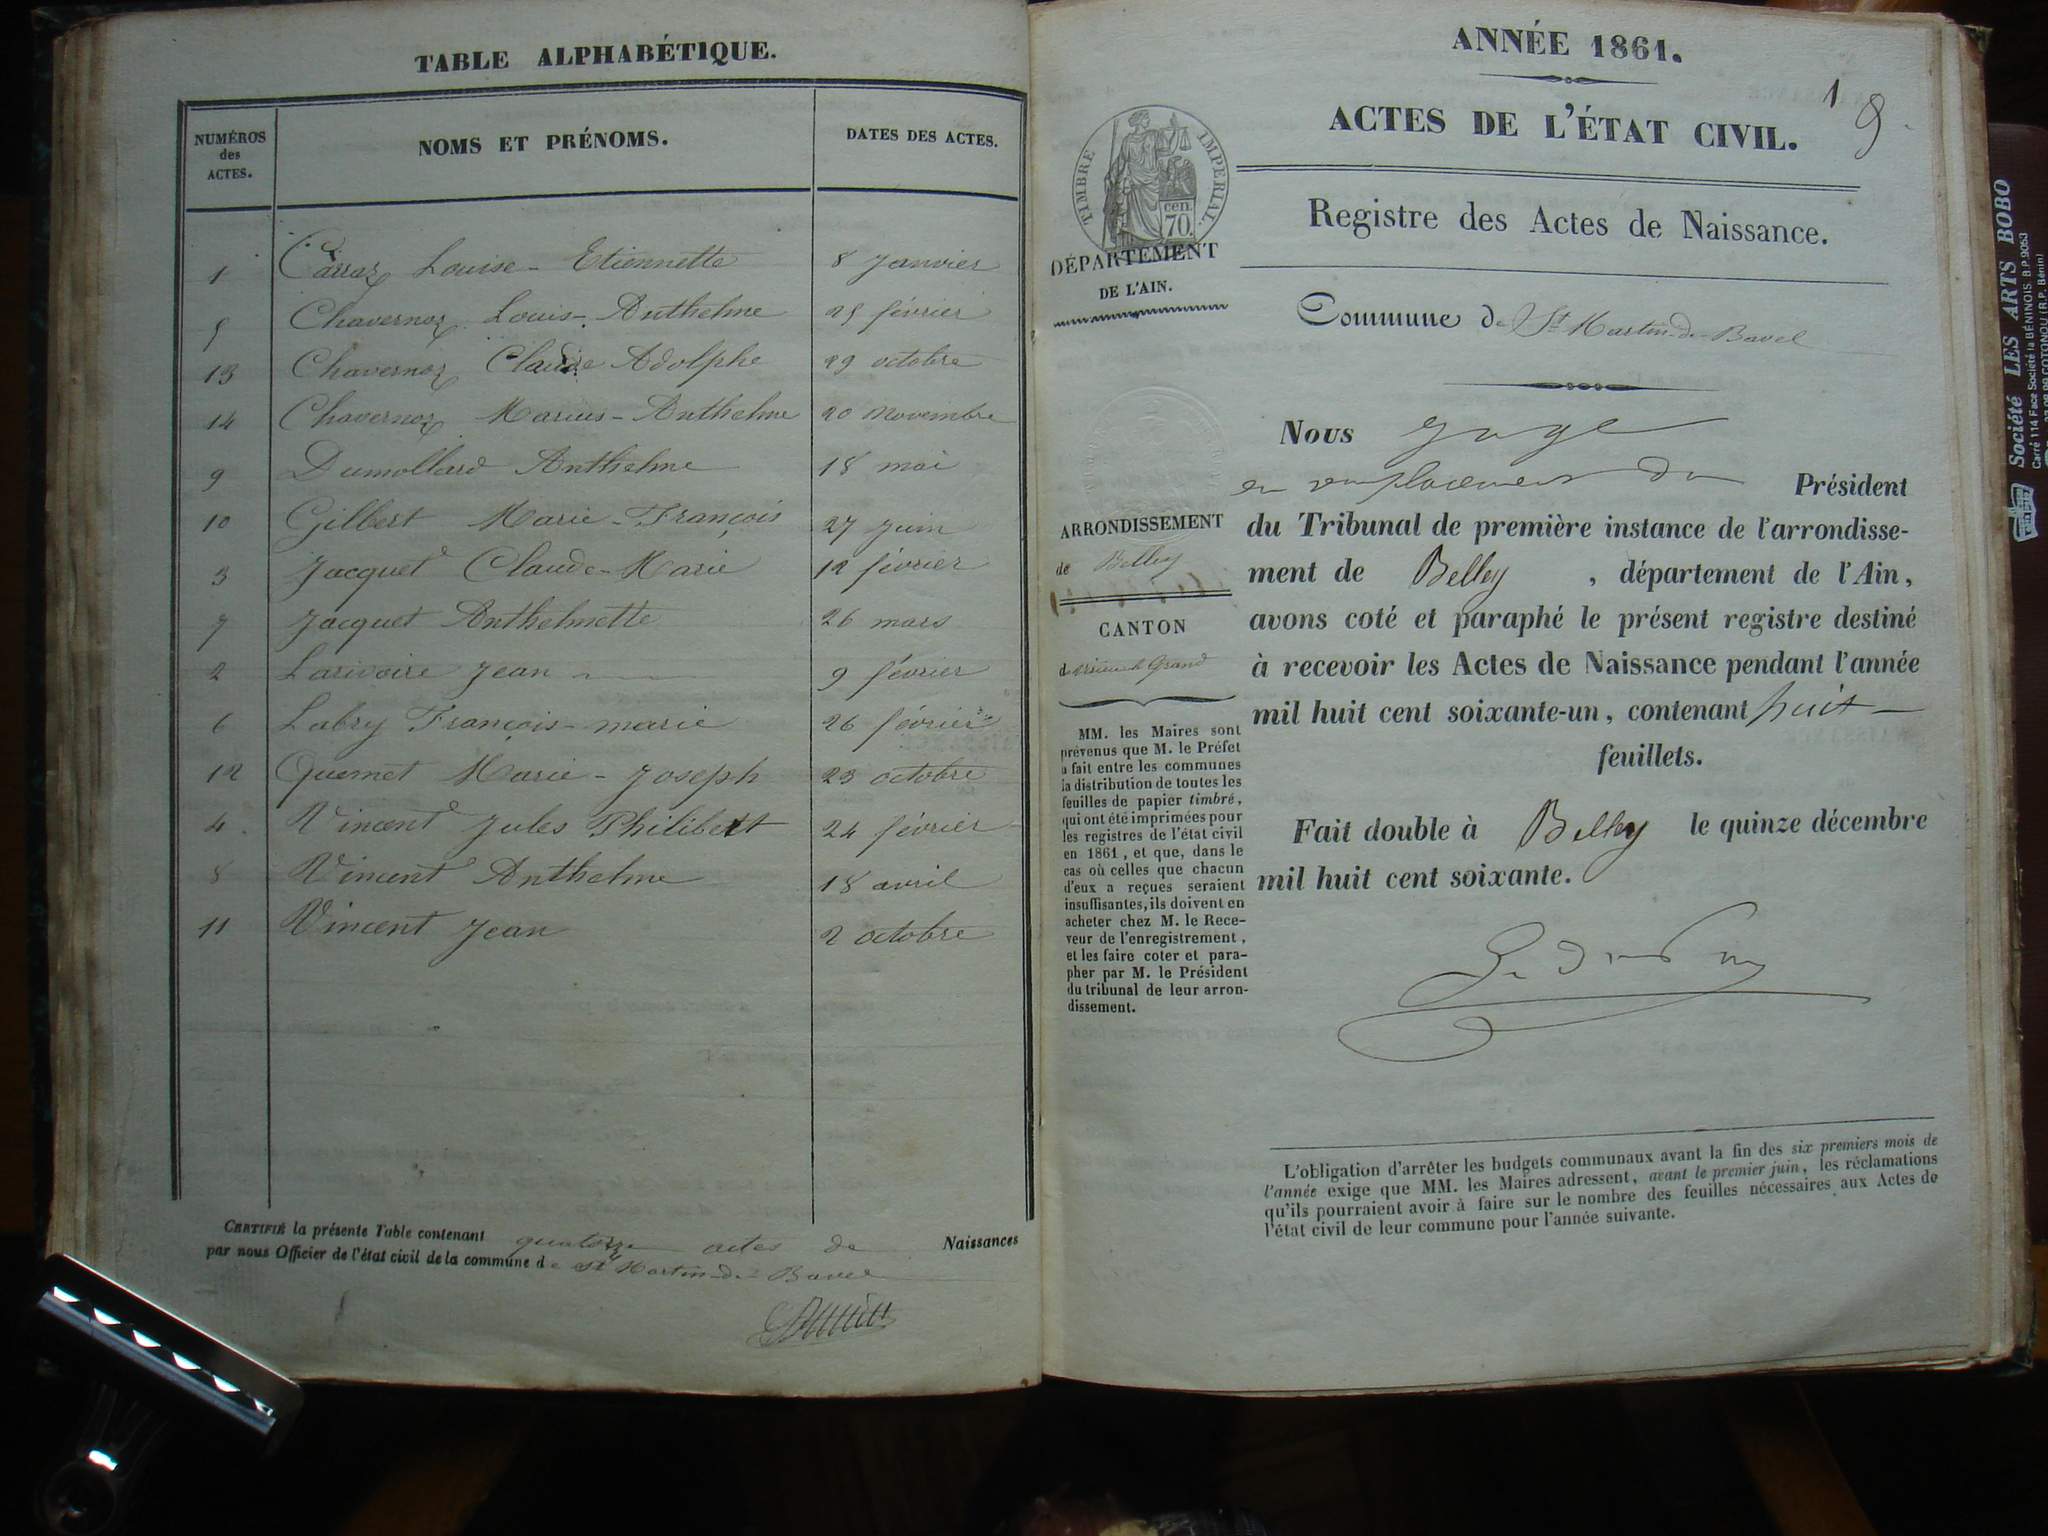 TABLE ALPHABÉTIQUE.
NUMÉROS des ACTES. NOMS ET PRÉNOMS. DATES DES ACTES.
1 Carraz Louise-Etiennette 8 janvier
5 Chavernoz Louis-Anthelme 25 février
13 Chavernoz Claude Adolphe 29 octobre
14 Chavernoz Marius-Anthelme 20 novembre
9 Dumollard Anthelme 18 mai
10 Gilbert Marie-François 27 juin
3 Jacquet Claude-Marie 12 février
7 Jacquet Anthelmette 26 mars
2 Larivoire Jean 9 février
6 Labry François-marie 26 février
12 Quemet Marie-Joseph 23 octobre
4 Vincent Jules Philibert 24 février
8 Vincent Anthelme 18 avril
11 Vincent Jean 2 octobre
CERTIFIÉ la présente Table contenant quatorze actes de Naissances
par nous Officier de l'état civil de la commune de St Martin-de-Bavel
ANNÉE 1861.
1
ACTES DE L'ÉTAT CIVIL.
TIMBRE IMPERIAL.
cen.
70.
DÉPARTEMENT
DE L'AIN.
Registre des Actes de Naissance.
Commune de St Martin-de-Bavel
Nous
en remplacement du Président
du Tribunal de première instance de l'arrondisse-
ment de Belley, département de l'Ain,
avons coté et paraphé le présent registre destiné
à recevoir les Actes de Naissance pendant l'année
mil huit cent soixante-un, contenant huit
feuillets.
Fait double à Belley le quinze décembre
mil huit cent soixante.
ARRONDISSEMENT
de Belley
CANTON
de virieu le Grand
MM. les Maires sont
prévenus que M. le Préfet
a fait entre les communes
la distribution de toutes les
feuilles de papier timbré,
qui ont été imprimées pour
les registres de l'état civil
en 1861, et que, dans le
cas où celles que chacun
d'eux a reçues seraient
insuffisantes, ils doivent en
acheter chez M. le Rece-
veur de l'enregistrement,
et les faire coter et para-
pher par M. le Président
du tribunal de leur arron-
dissement.
L'obligation d'arrêter les budgets communaux avant la fin des six premiers mois de
l'année exige que MM. les Maires adressent, avant le premier juin, les réclamations
qu'ils pourraient avoir à faire sur le nombre des feuilles nécessaires aux Actes de
l'état civil de leur commune pour l'année suivante.
Société LES ARTS BOBO
Carré 114 Face Société la BÉNINOIS. B.P. 9063
COTONOU (R.P. Bénin)